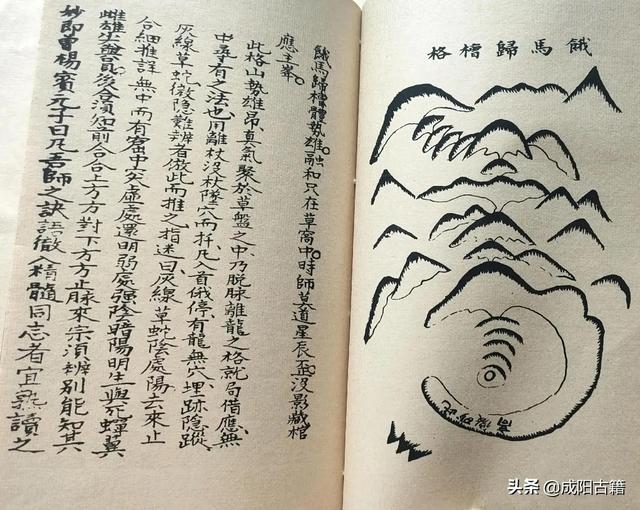 餓馬歸槽格
餓馬歸槽體勢雄融和只在草窩中時師莫道星辰丕沒影藏棺
應主峯
此格山勢雄昂真氣聚於草盤之中乃脫脉離龍之格就局借應無
中尋有之法也用離杖沒杖墜穴而扦凡入首俄停有龍無穴埋跡隱蹤
灰線草蛇微隱難辨者倣此而推之指迷曰灰線草蛇陰處陽去來止
合細推詳無中而有窩中突虛處還明弱處强陰暗陽明生與死蟬翼
雌雄坐盤後合須知前合合上方方對下方方止脉來宗須辨別能知其
妙即曾楊賓元子曰凡吾師之訣語微入精髓同志者宜熟讀之
头条 @成阳古籍